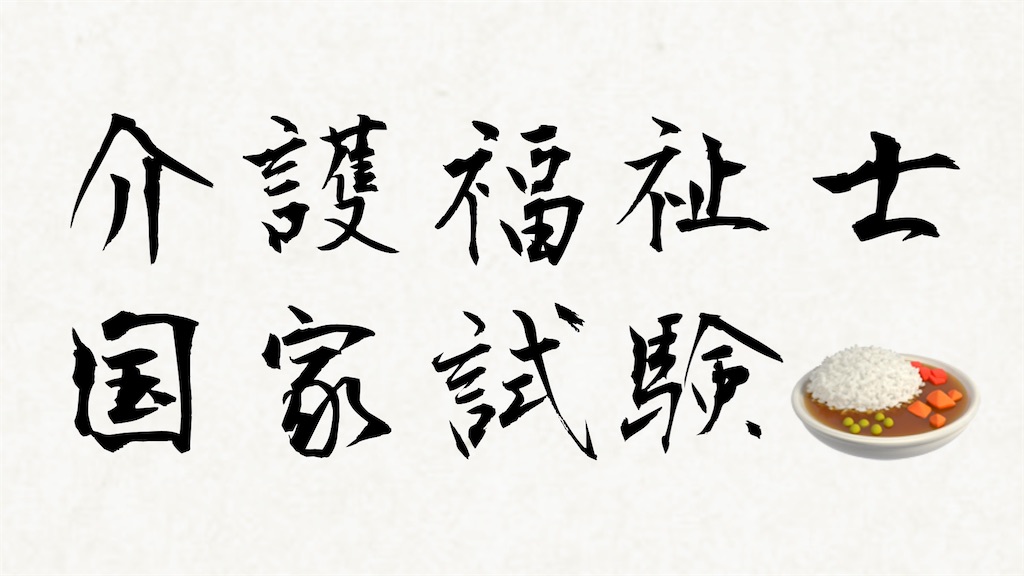 介護福祉士
国家試験